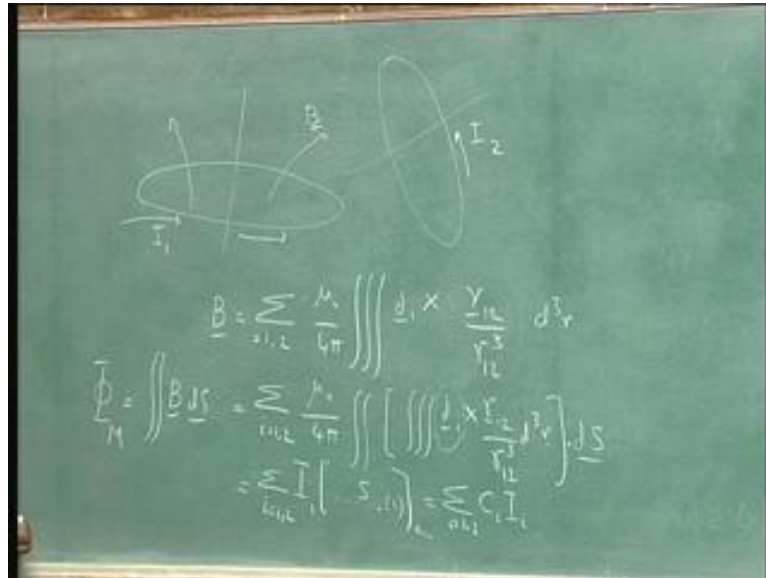 B
I₂
I₁
B = Σ_{i=1,2} μ₀/4π ∭ d₁ × r₁₂/r₁₂³ d³r
Φ_M = ∬ B dS = Σ_{i=1,2} μ₀/4π ∬ [ ∭ d₁ × r₁₂/r₁₂³ d³r ] . dS
= Σ_{i=1,2} I_i [ = Σ_{i=1,2} C_i I_i